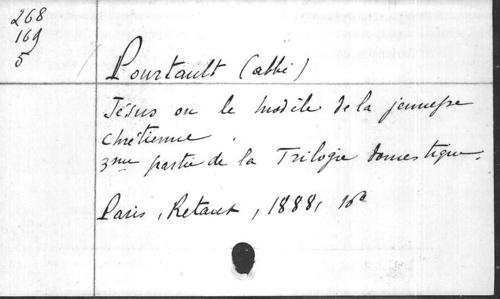 268
169
5
Pourtault (abbé)
Jésus ou le modèle de la jeunesse
chrétienne.
3me partie de la Trilogie domestique.
Paris, Retaux, 1888, 16°